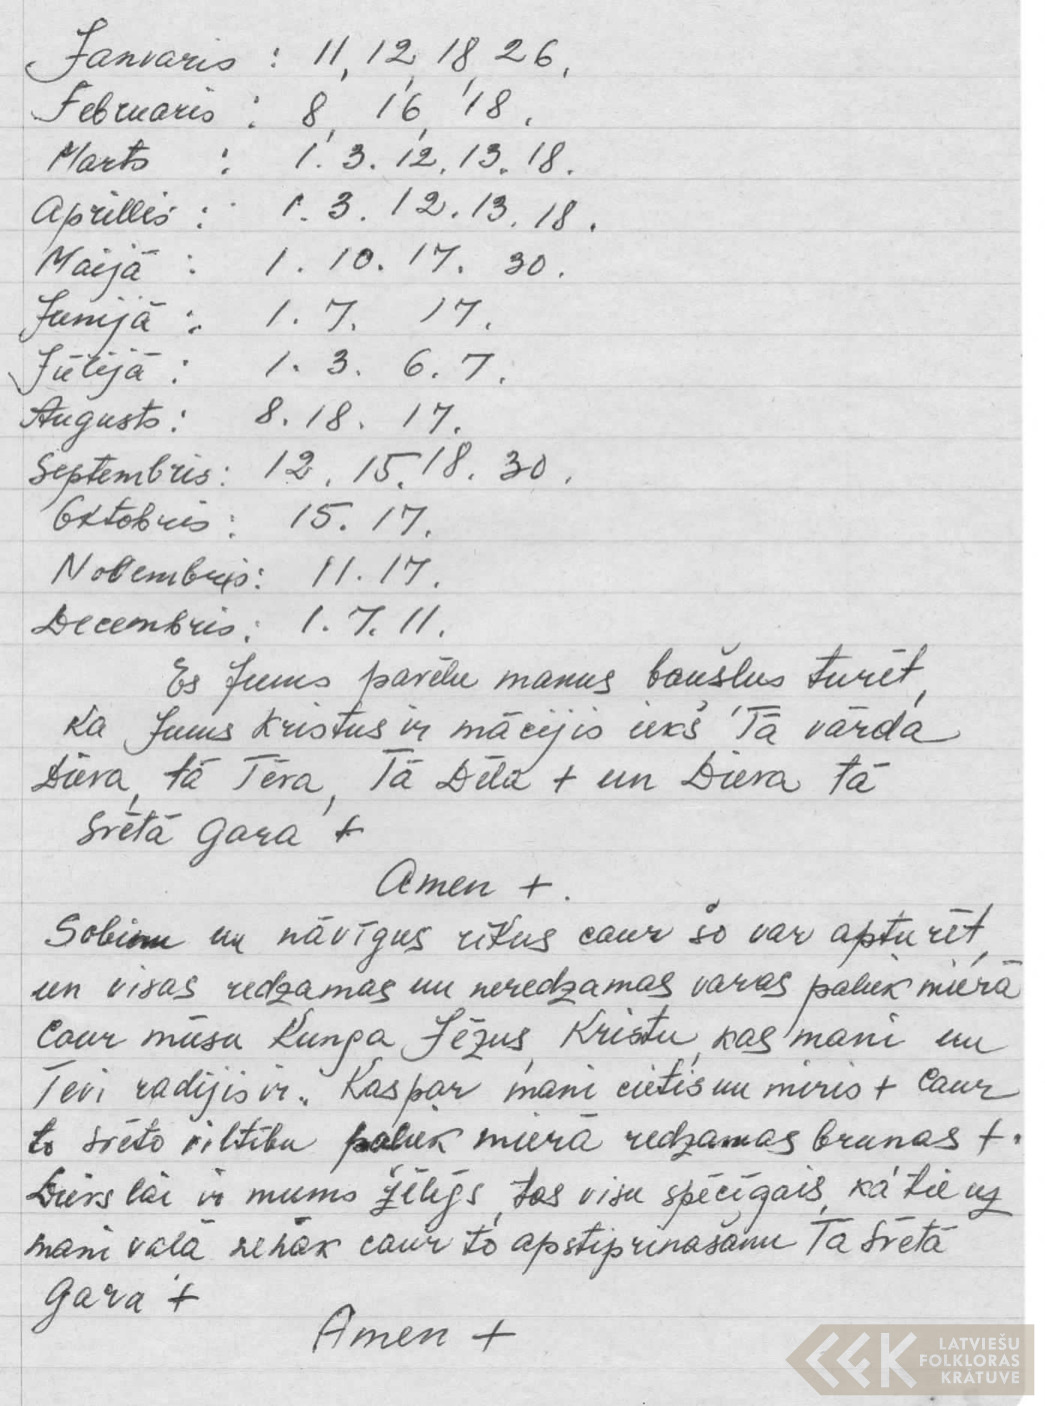 Janvaris : 11, 12, 18, 26,
Februaris : 8, 16, 18.
Marts : 1. 3. 12. 13. 18.
Aprillis : 1. 3. 12. 13. 18.
Maijā : 1. 10. 17. 30.
Junijā : 1. 7. 17.
Jūlijā : 1. 3. 6. 7.
Augusts : 8. 18. 17.
Septembris : 12. 15. 18. 30.
Oktobris : 15. 17.
Novembris : 11. 17.
Decembris : 1. 7. 11.
Es Jums pavēlu manus baušļus turēt,
Ka Jums Kristus ir mācijis iekš Tā vārda
Dieva, tā Tēva, Tā Dēla + un Dieva tā
Svētā Gara +
Amen +.
Sobinu un nāvīgus rīkus caur šo var apturēt,
un visas redzamas un neredzamas varas paliek mierā
Caur mūsu Kunga Jēzus Kristu, kas mani un
Tevi radijis ir. Kas par mani cietis un miris + Caur
to svēto viltību paliek mierā redzamas brunas +.
Dievs lai ir mums žēlīgs, tas visu spēcīgais, kā tie uz
mani vaļā nenāk caur to apstiprinašanu Tā Svētā
Gara +
Amen +
LATVIEŠU
FOLKLORAS
KRĀTUVE